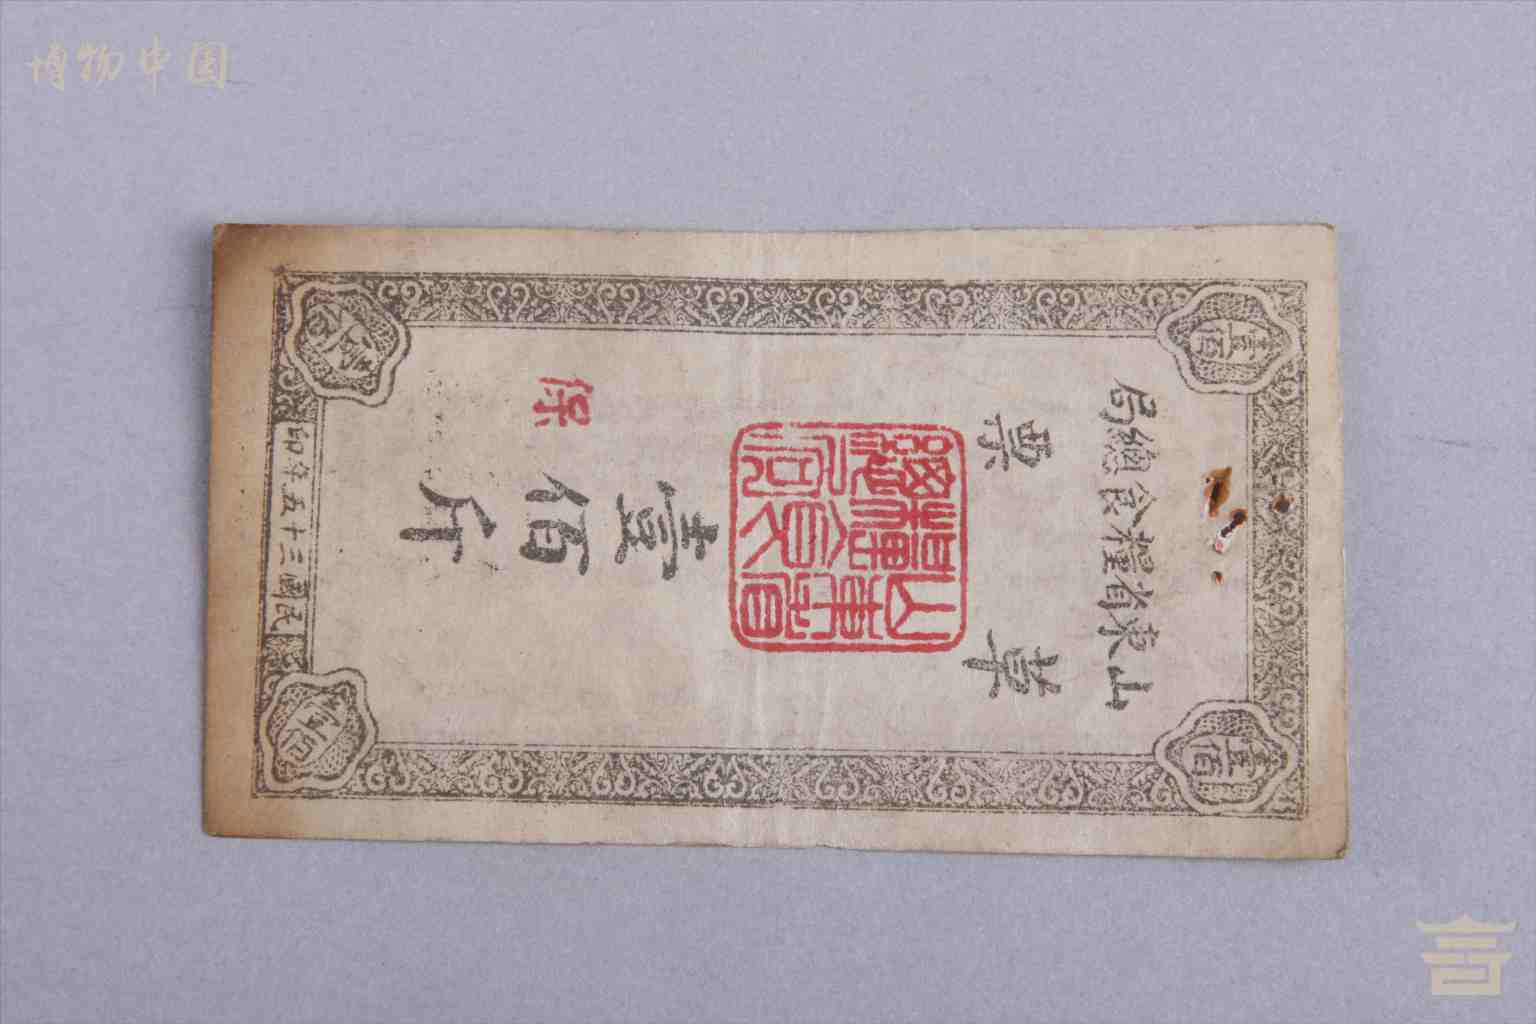 博物中国
山東省糧食總局
草票
壹佰斤
保
山東省糧食總局
民國三十五年印
壹佰
壹佰
壹佰
壹佰